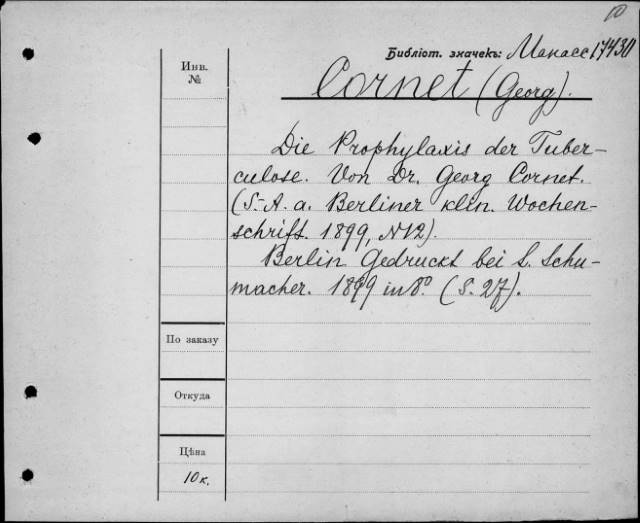 Библіот. значекъ: Манасс 17430
Инв. №
Cornet (Georg).
Die Prophylaxis der Tuber-
culose. Von Dr. Georg Cornet.
(S.-A. a. Berliner klin. Wochen-
schrift. 1899, N12).
Berlin Gedruckt bei L. Schu-
macher. 1899 in 8º. (S. 27).
По заказу
Откуда
Цѣна
10 к.